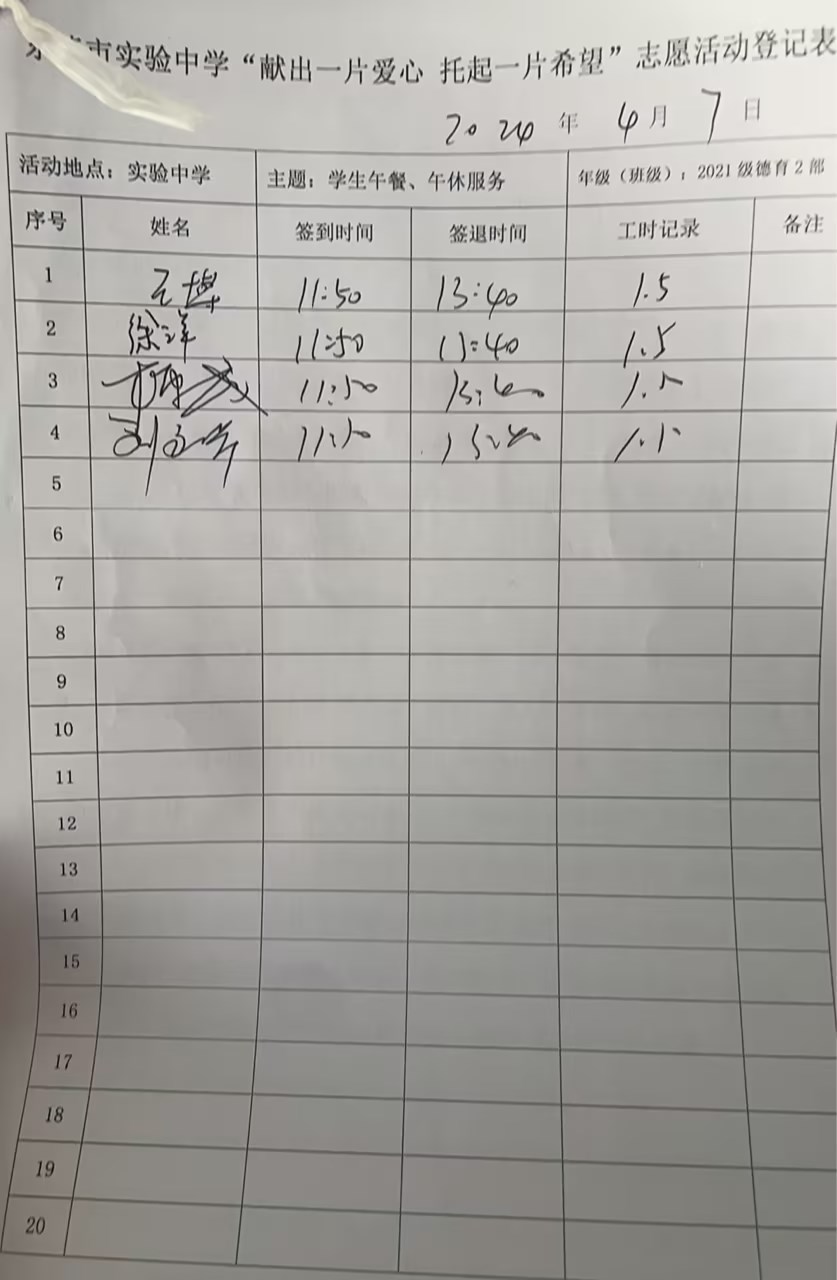 市实验中学“献出一片爱心 托起一片希望”志愿活动登记表
2024 年 4 月 7 日
活动地点：实验中学 主题：学生午餐、午休服务 年级（班级）：2021级德育2部
序号 姓名 签到时间 签退时间 工时记录 备注
1 王博 11:50 13:40 1.5
2 徐洋 11:50 13:40 1.5
3 11:50 13:40 1.5
4 11:50 13:40 1.5
5
6
7
8
9
10
11
12
13
14
15
16
17
18
19
20